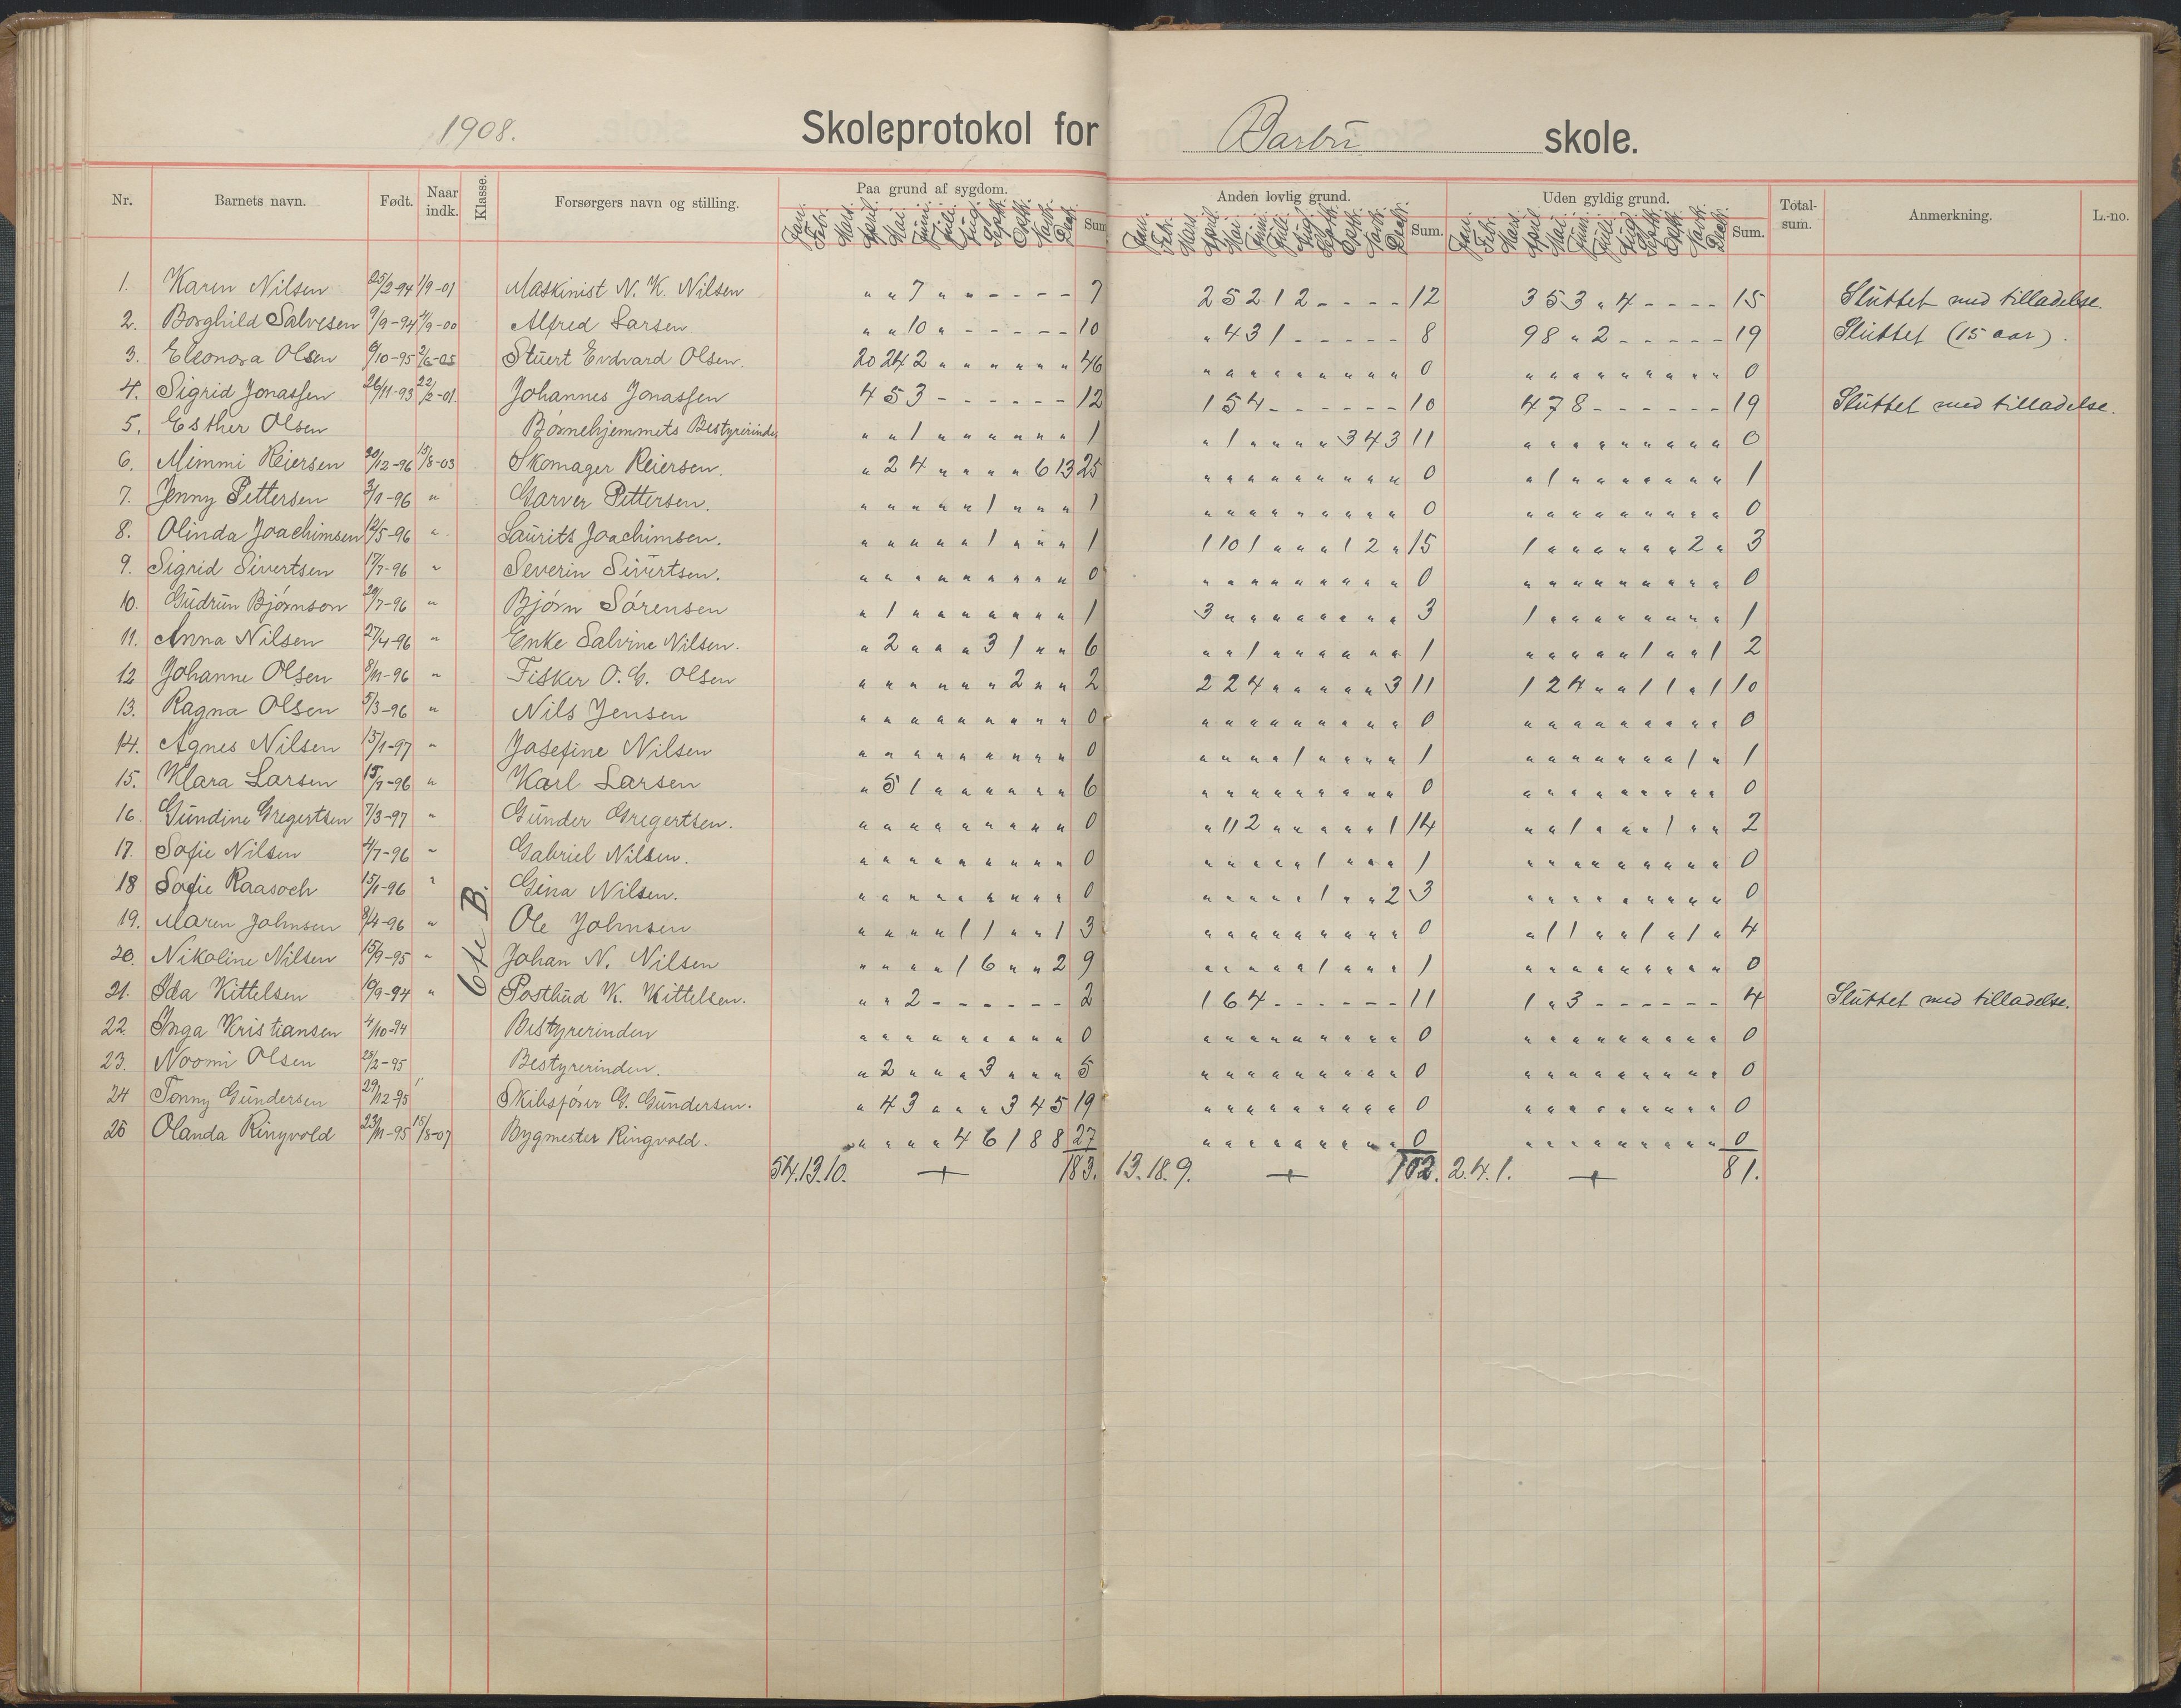 1908. Skoleprotokol for Barbu skole.
Nr. Barnets navn. Født. Naar indk. Klasse. Forsørgers navn og stilling. Paa grund af sygdom. Anden lovlig grund. Uden gyldig grund. Total-sum. Anmerkning. L.-no.
Jan. Febr. Mars. April. Mai. Juni. Juli. Aug. Septb. Oktb. Novb. Decb. Sum Jan. Febr. Mars. April. Mai. Juni. Juli. Aug. Septb. Oktb. Novb. Decb. Sum. Jan. Febr. Mars. April. Mai. Juni. Juli. Aug. Septb. Oktb. Novb. Decb. Sum.
1. Karen Nilsen 25/2-94 1/9-01 Maskinist N. K. Nilsen " " 7 " " - - - - 7 2 5 2 1 2 - - - - 12 3 5 3 " 4 - - - - 15 Sluttet med tilladelse.
2. Borghild Salvesen 9/9-94 /9-00 Alfred Larsen " " 10 " - - - - - 10 " 4 3 1 - - - - - 8 9 8 " 2 - - - - - 19 Sluttet (15 aar).
3. Eleonora Olsen 6/10-95 2/6-05 Stuert Evdvard Olsen. 20 24 2 " " " " " " 46 " " " " " " " " " 0 " " " " " " " " " 0
4. Sigrid Jonassen 26/11-93 22/2-01. Johannes Jonassen 4 5 3 - - - - - - 12 1 5 4 - - - - - - 10 4 7 8 - - - - - - 19 Sluttet med tilladelse.
5. Esther Olsen Børnehjemmets Bestyrerinde " " 1 " " " " " " 1 " 1 " " " " 3 4 3 11 " " " " " " " " " 0
6. Mimmi Reiersen 20/12-96 15/8-03 Skomager Reiersen. " 2 4 " " " " 6 13 25 " " " " " " " " " 0 " 1 " " " " " " " 1
7. Jenny Pettersen 3/1-96 " Garver Pettersen. " " " " " 1 " " " 1 " " " " " " " " " 0 " " " " " " " " " 0
8. Olinda Joachimsen 12/5-96 " Laurits Joachimsen. " " " " " 1 " " " 1 1 10 1 " " " 1 2 " 15 1 " " " " " " 2 " 3
9. Sigrid Sivertsen 17/7-96 " Severin Sivertsen. " " " " " " " " " 0 " " " " " " " " " 0 " " " " " " " " " 0
10. Gudrun Bjørnson 29/7-96 " Bjørn Sørensen " 1 " " " " " " " 1 3 " " " " " " " " 3 1 " " " " " " " " 1
11. Anna Nilsen 27/4-96 " Enke Salvine Nilsen. " 2 " " " 3 1 " " 6 " " 1 " " " " " " 1 " " " " " 1 " " 1 2
12 Johanne Olsen 8/11-96 " Fisker O. C. Olsen " " " " " " 2 " " 2 2 2 4 " " " " " 3 11 1 2 4 " " 1 1 " 1 10
13. Ragna Olsen 5/3-96 " Nils Jensen " " " " " " " " " 0 " " " " " " " " " 0 " " " " " " " " " 0
14. Agnes Nilsen 15/1-97 " Josefine Nilsen " " " " " " " " " 0 " " " " 1 " " " " 1 " " " " " " " 1 " 1
15. Klara Larsen 15/9-96 " Karl Larsen " 5 1 " " " " " " 6 " " " " " " " " " 0 " " " " " " " " " 0
16. Gundine Gregertsen 7/3-97 " Gunder Gregertsen. " " " " " " " " " 0 " 11 2 " " " " " 1 14 " " 1 " " " 1 " " 2
17. Sofie Nilsen 4/7-96 " Gabriel Nilsen. " " " " " " " " " 0 " " " " " 1 " " " 1 " " " " " " " " " 0
18 Sofie Raasoch 15/1-96 " Gina Nilsen. " " " " " " " " " 0 " " " " " 1 " " 2 3 " " " " " " " " " 0
19. Maren Johnsen 8/4-96 " 6te B. Ole Johnsen " " " " 1 1 " " 1 3 " " " " " " " " " 0 " 1 1 " " 1 " 1 " 4
20. Nikoline Nilsen 15/9-95 " Johan N. Nilsen " " " " 1 6 " " 2 9 " " " " " 1 " " " 1 " " " " " " " " " 0
21. Ida Kittelsen 10/9-94 " Postbud K. Kittelsen. " " 2 - - - - - - 2 1 6 4 - - - - - - 11 1 " 3 - - - - - - 4 Sluttet med tilladelse.
22 Inga Kristiansen 4/10-94 Bestyrerinden " " " " " " " " " 0 " " " " " " " " " 0 " " " " " " " " " 0
23. Noomi Olsen 25/2-95 Bestyrerinden. " 2 " " " 3 " " " 5 " " " " " " " " " 0 " " " " " " " " " 0
24 Tonny Gundersen 29/12 95 Skibsfører G. Gundersen. " 4 3 " " " 3 4 5 19 " " " " " " " " " 0 " " " " " " " " " 0
25 Olanda Ringvold 23/11-95 15/8-07 Bygmester Ringvold. " " " " 4 6 1 8 8 27 " " " " " " " " " 0 " " " " " " " " " 0
54.13.10. + 183. 13.18.9. + 102. 2.4.1. + 81.